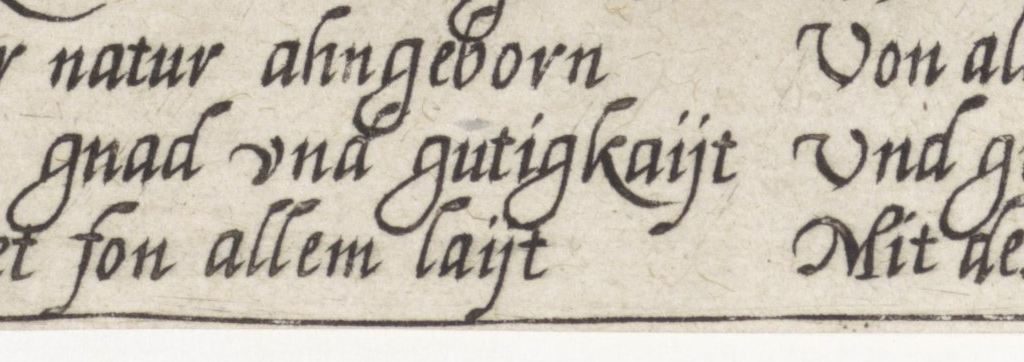 natur ahngeborn
gnad vnd gutigkaijt
fon allem laijt
Von
Vnd
Mit